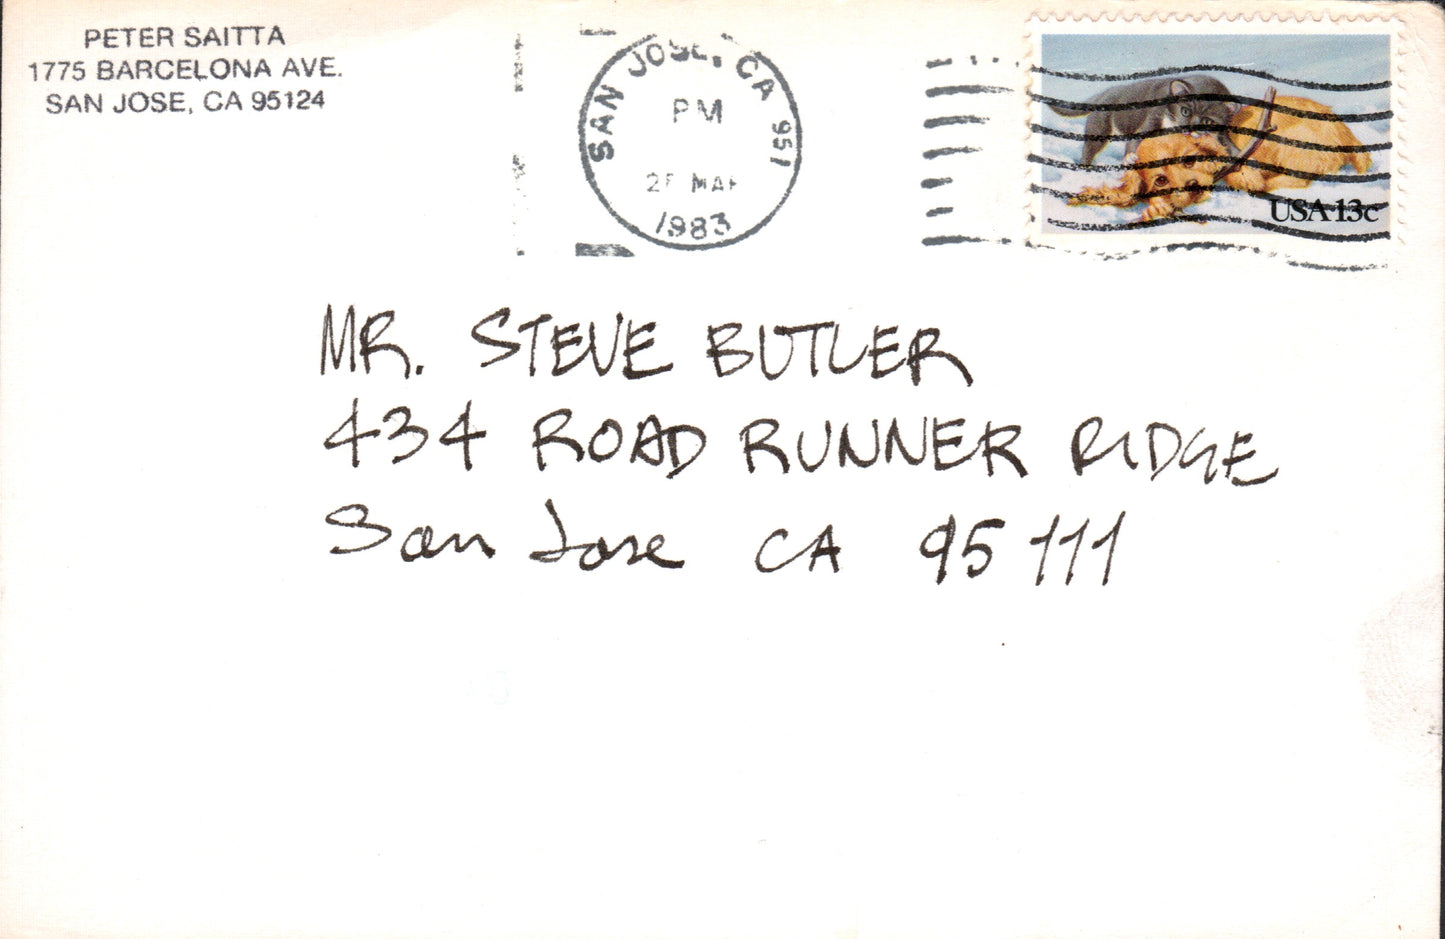 PETER SAITTA
1775 BARCELONA AVE.
SAN JOSE, CA 95124
SAN JOSE, CA 951
PM
MAR
1983
USA 13c
MR. STEVE BUTLER
434 ROAD RUNNER RIDGE
San Jose CA 95111